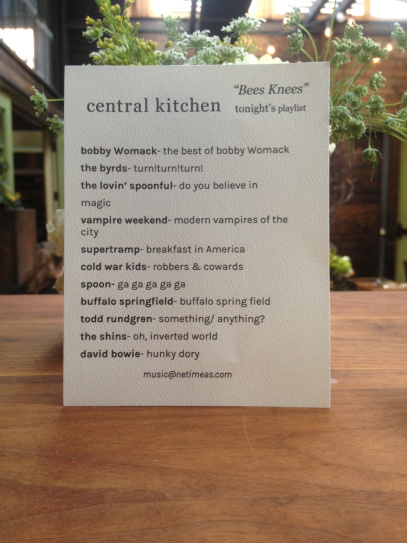 "Bees Knees"
central kitchen tonight's playlist
bobby Womack- the best of bobby Womack
the byrds- turn!turn!turn!
the lovin' spoonful- do you believe in
magic
vampire weekend- modern vampires of the
city
supertramp- breakfast in America
cold war kids- robbers & cowards
spoon- ga ga ga ga ga
buffalo springfield- buffalo spring field
todd rundgren- something/ anything?
the shins- oh, inverted world
david bowie- hunky dory
music@netimeas.com